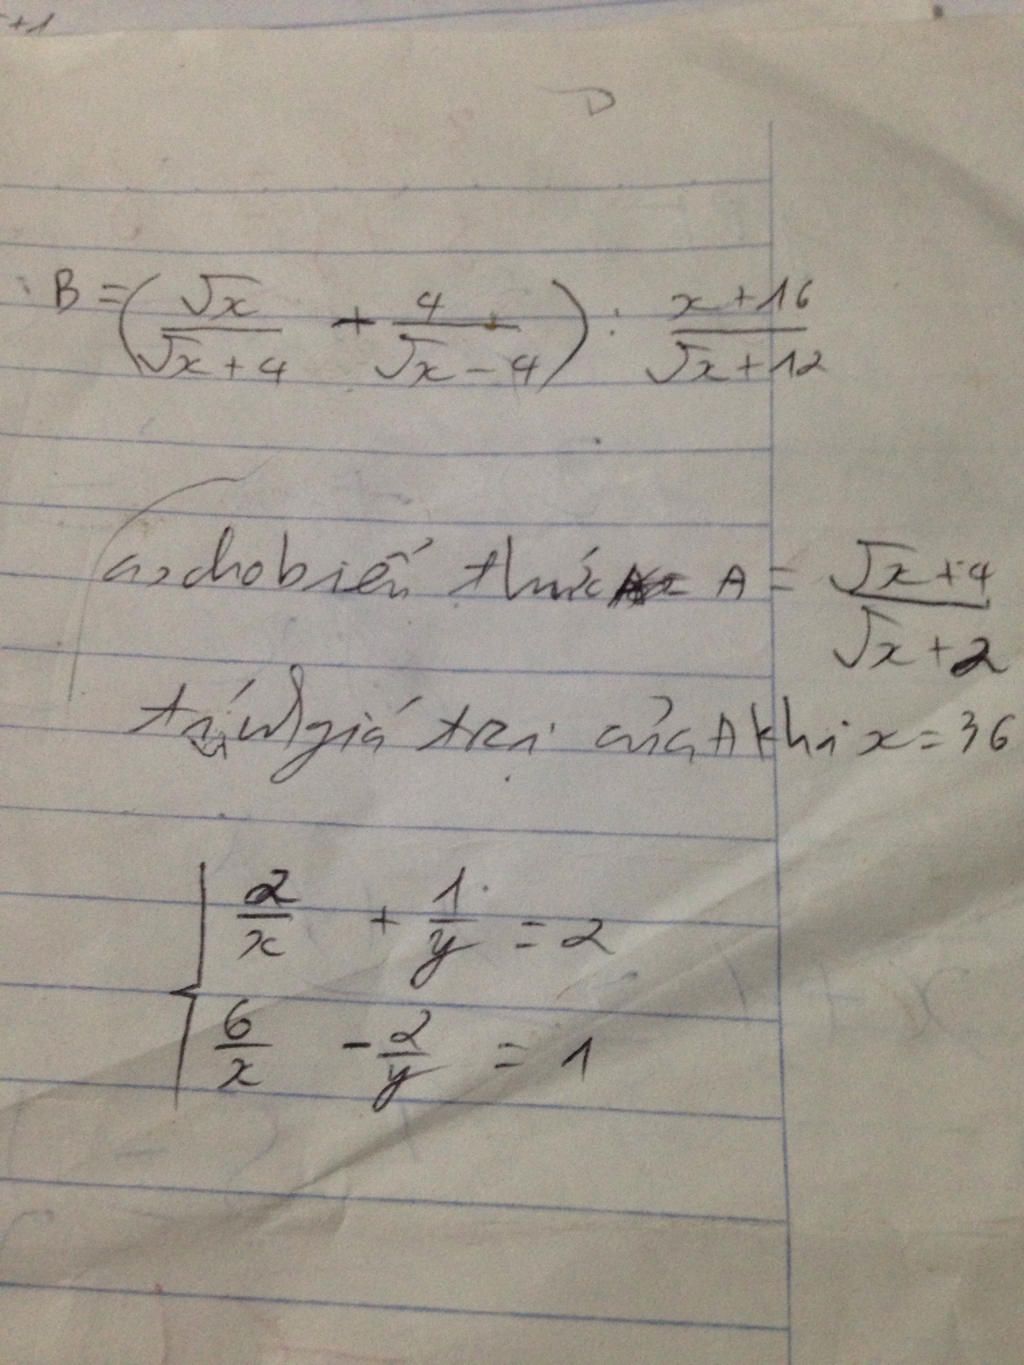 +1
B = (√x / √x+4 + 4 / √x-4) : x+16 / √x+12
a, cho biến thức A = √x+4 / √x+2
tính giá trị của A khi x = 36
{ 2/x + 1/y = 2
6/x - 2/y = 1